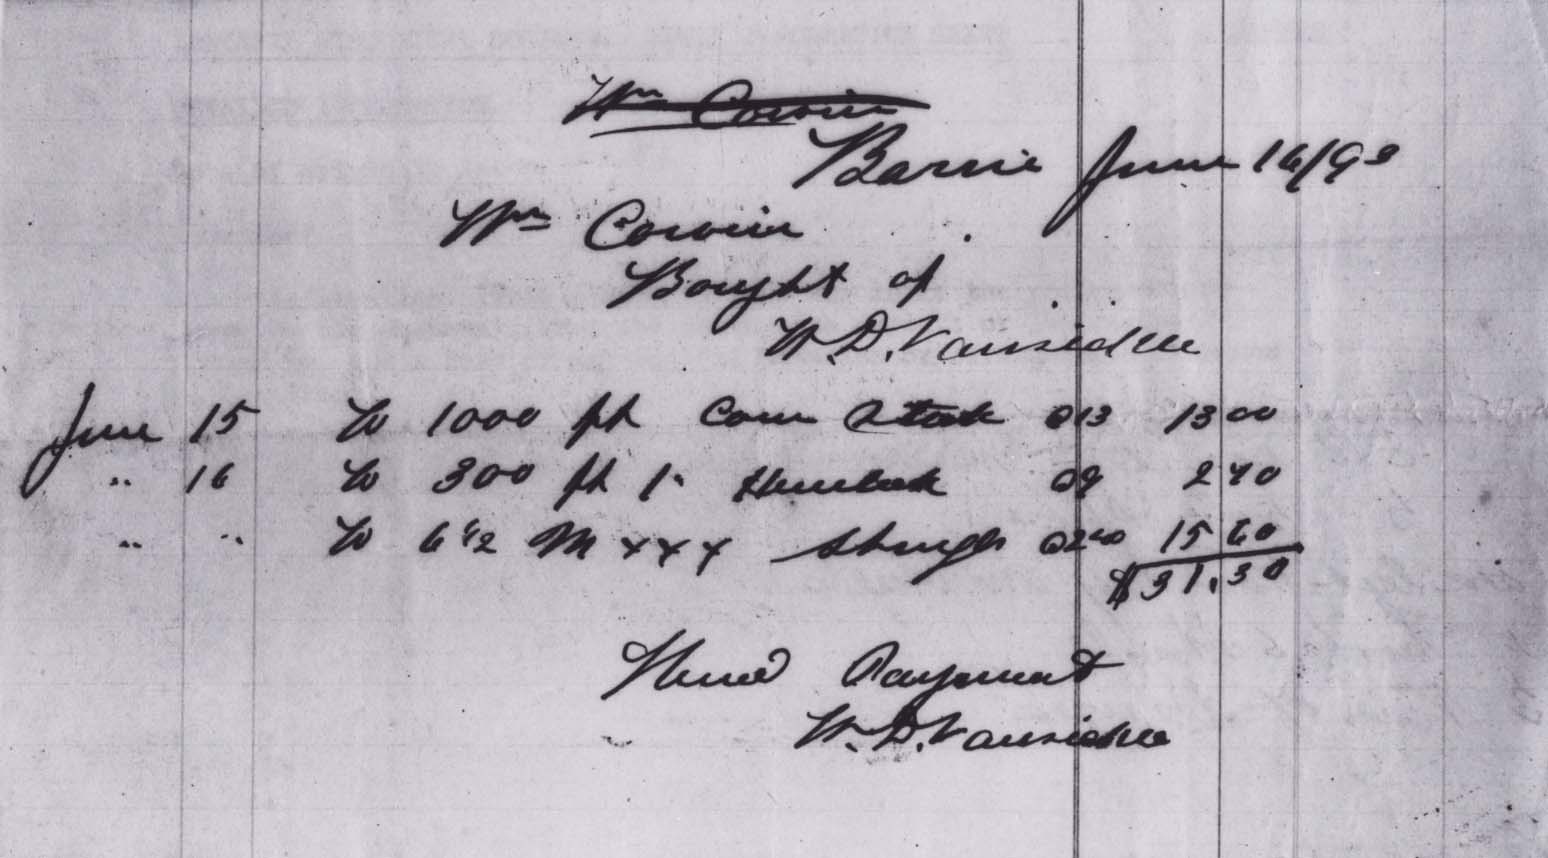 Wm Corwin
Barrie June 16/98
Wm Corwin
Bought of
W. D. Vansickle
June 15 To 1000 ft Com Stock @13 13 00
" 16 To 300 ft 1" Hemlock @9 2 70
" " To 6 1/2 M x x x Shingls @2 40 15 60
$31.30
Payment
W. D. Vansickle